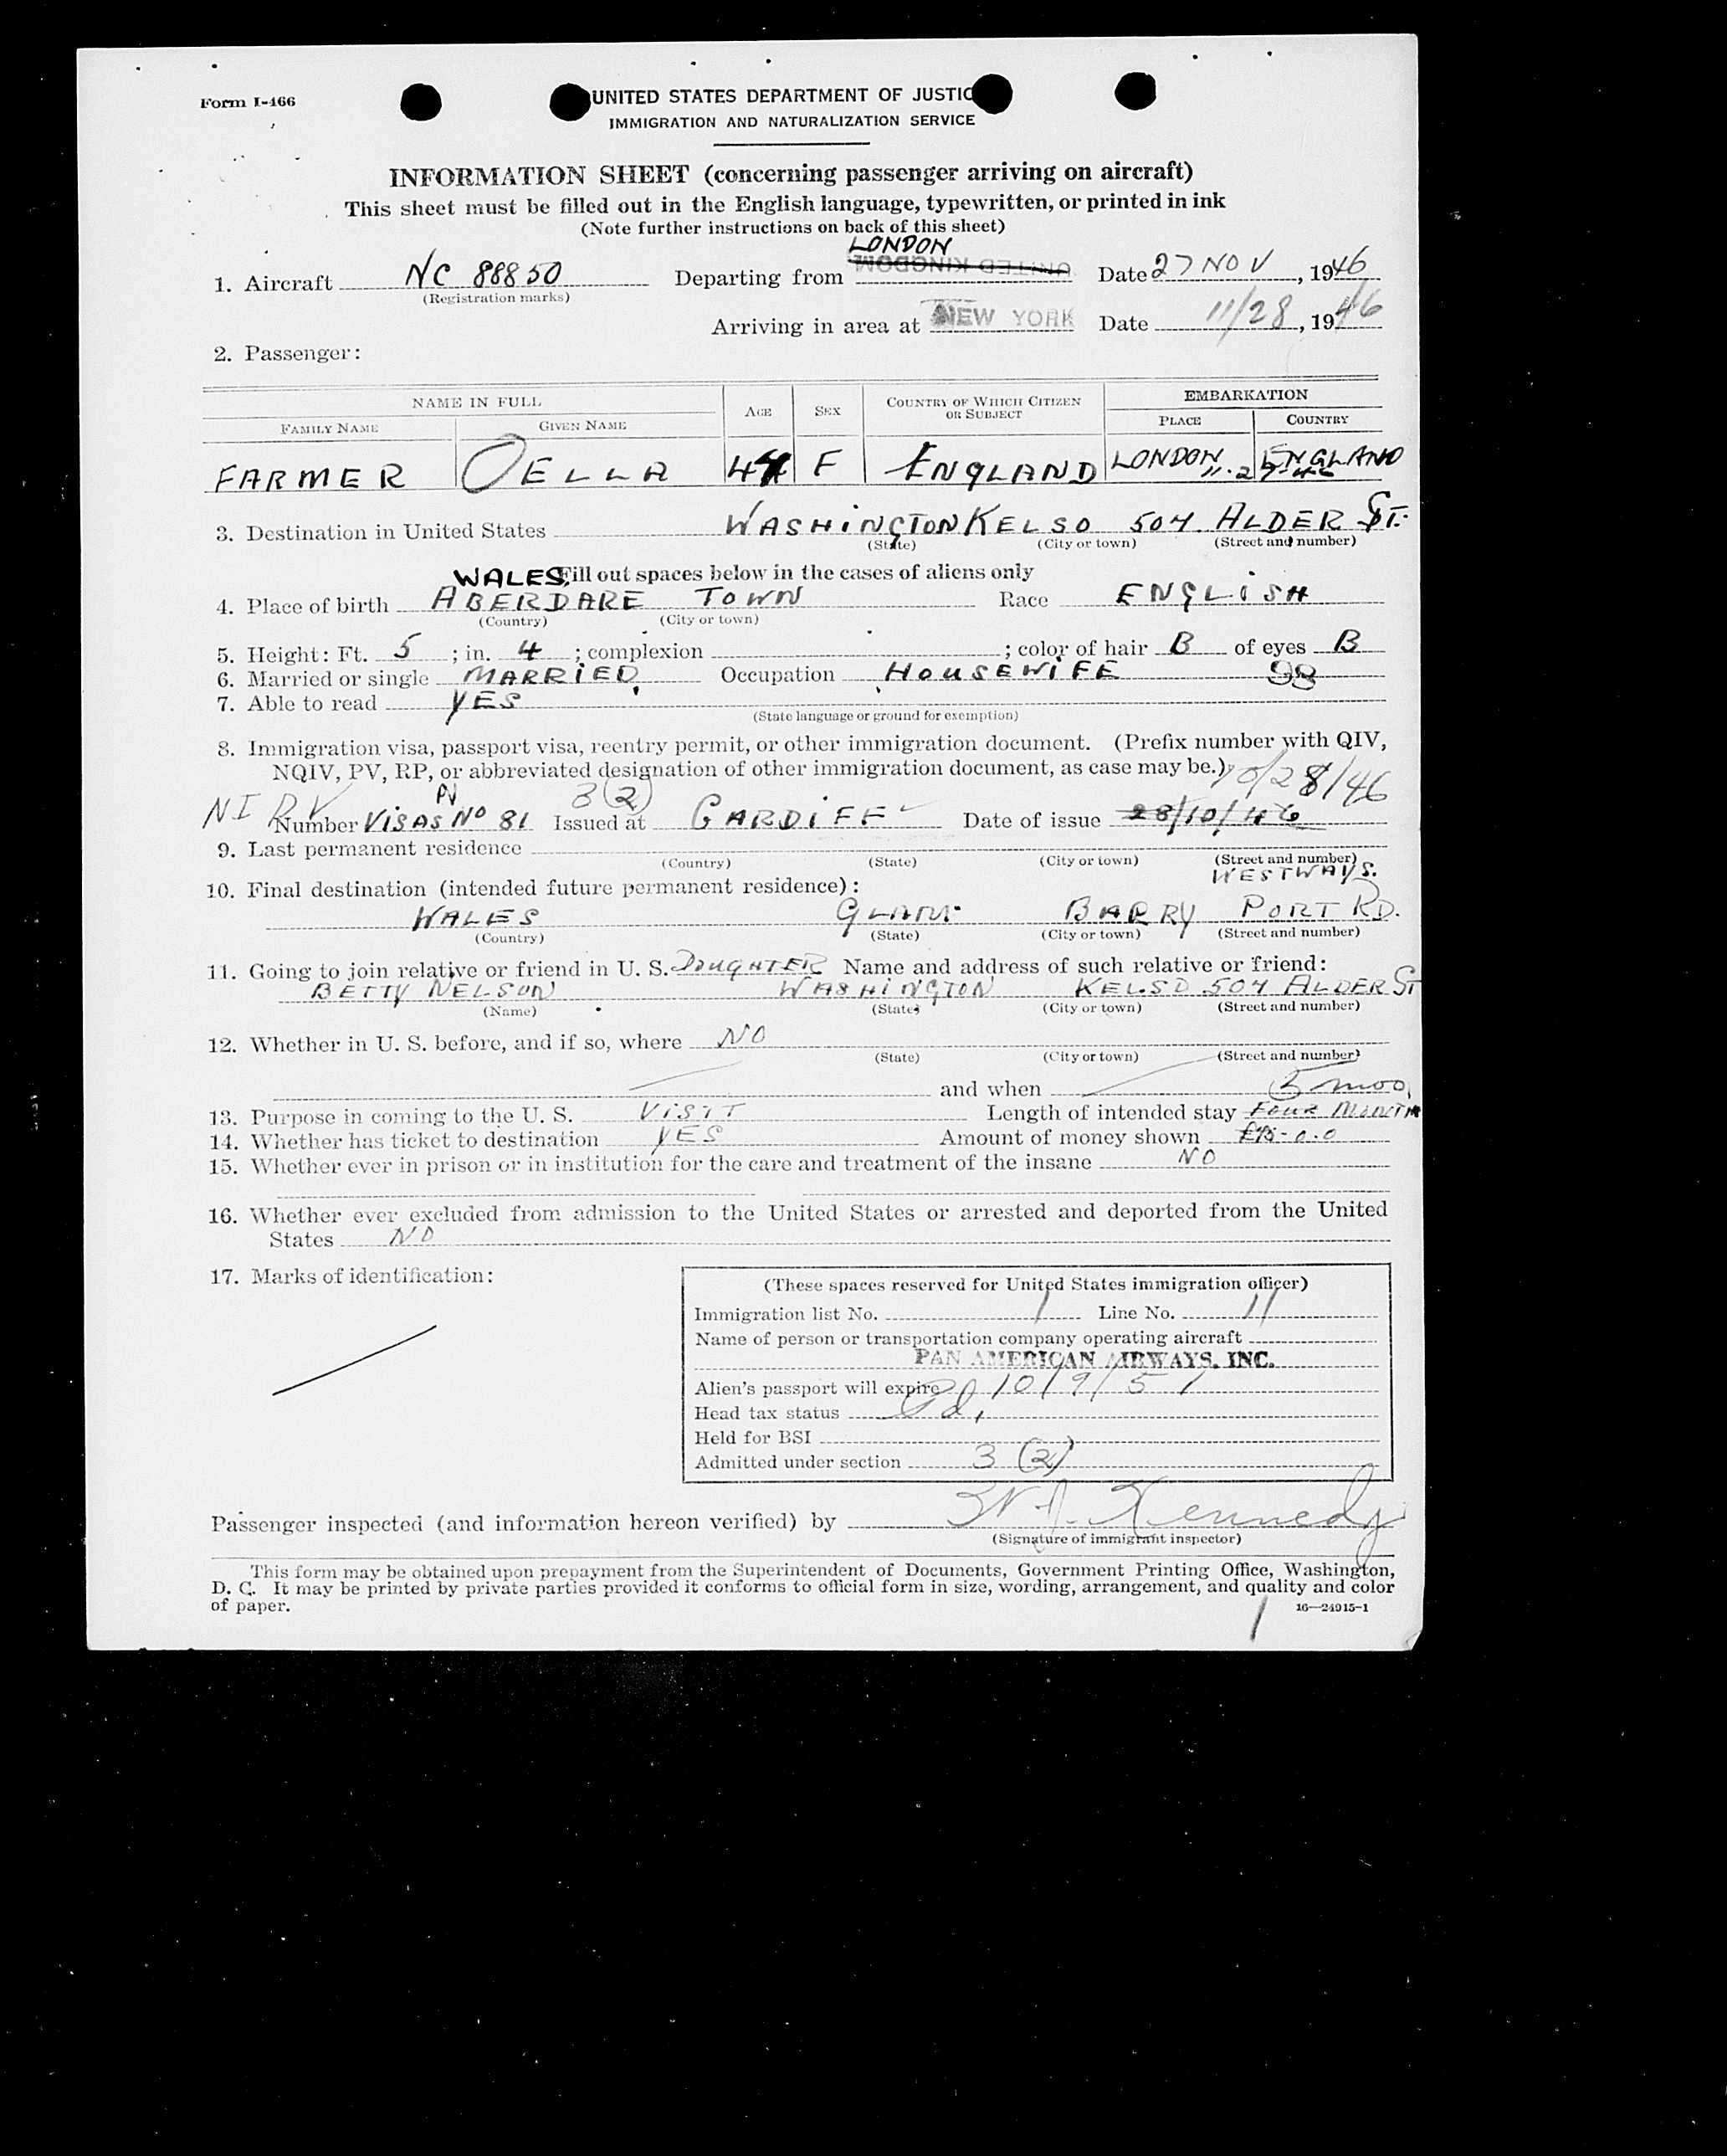 Form I-466
UNITED STATES DEPARTMENT OF JUSTIC
IMMIGRATION AND NATURALIZATION SERVICE
INFORMATION SHEET (concerning passenger arriving on aircraft)
This sheet must be filled out in the English language, typewritten, or printed in ink
(Note further instructions on back of this sheet)
LONDON
1. Aircraft NC 88850 Departing from UNITED KINGDOM Date 27 NOV, 1946
(Registration marks)
Arriving in area at NEW YORK Date 11/28, 1946
2. Passenger:
NAME IN FULL AGE SEX COUNTRY OF WHICH CITIZEN OR SUBJECT EMBARKATION
FAMILY NAME GIVEN NAME PLACE COUNTRY
FARMER OELLA 44 F ENGLAND LONDON ENGLAND
11-27-46
3. Destination in United States WASHINGTON KELSO 504 ALDER ST.
(State) (City or town) (Street and number)
WALES. Fill out spaces below in the cases of aliens only
4. Place of birth ABERDARE TOWN Race ENGLISH
(Country) (City or town)
5. Height: Ft. 5; in. 4; complexion ; color of hair B of eyes B
6. Married or single MARRIED Occupation HOUSEWIFE 98
7. Able to read YES
(State language or ground for exemption)
8. Immigration visa, passport visa, reentry permit, or other immigration document. (Prefix number with QIV,
NQIV, PV, RP, or abbreviated designation of other immigration document, as case may be.) 10/28/46
PV 3(2)
Number VISAS No 81 Issued at CARDIFF Date of issue 28/10/46
9. Last permanent residence
(Country) (State) (City or town) (Street and number)
WESTWAYS.
10. Final destination (intended future permanent residence):
WALES GLAM BARRY PORT RD.
(Country) (State) (City or town) (Street and number)
11. Going to join relative or friend in U. S. DOUGHTER Name and address of such relative or friend:
BETTY NELSON WASHINGTON KELSO 504 ALDER ST
(Name) (State) (City or town) (Street and number)
12. Whether in U. S. before, and if so, where NO
(State) (City or town) (Street and number)
and when 5 mos.
13. Purpose in coming to the U. S. VISIT Length of intended stay FOUR MONTH
14. Whether has ticket to destination YES Amount of money shown
15. Whether ever in prison or in institution for the care and treatment of the insane NO
16. Whether ever excluded from admission to the United States or arrested and deported from the United
States NO
17. Marks of identification:
(These spaces reserved for United States immigration officer)
Immigration list No. 1 Line No. 11
Name of person or transportation company operating aircraft
PAN AMERICAN AIRWAYS, INC.
Alien's passport will expire 10/9/51
Head tax status Pd.
Held for BSI
Admitted under section 3 (2)
Passenger inspected (and information hereon verified) by Kennedy
(Signature of immigrant inspector)
This form may be obtained upon prepayment from the Superintendent of Documents, Government Printing Office, Washington,
D. C. It may be printed by private parties provided it conforms to official form in size, wording, arrangement, and quality and color
of paper.
16—24915-1
1